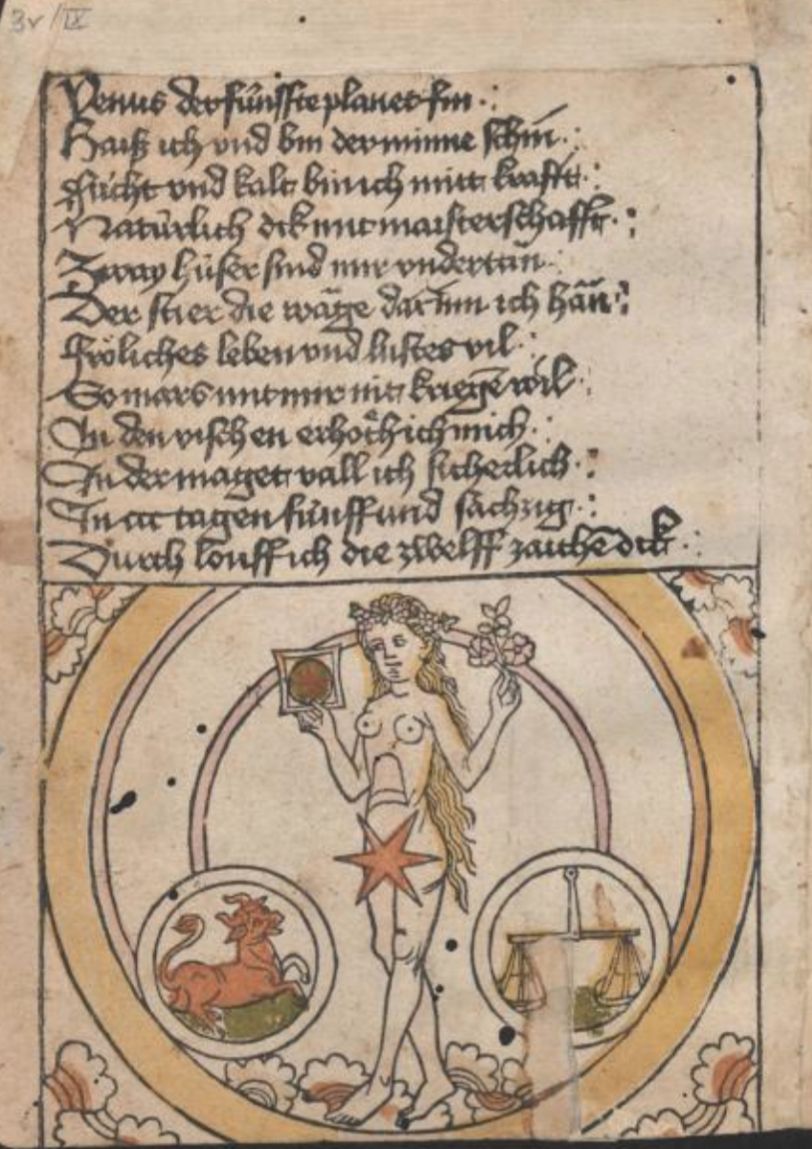 3v/IX
Venus der fünffte planet fin
Haiß ich vnd bin der minne schin
Fücht vnd kalt bin ich mitt krafft
Natürlich dik mit maisterschafft
Zway hüser sind mir vndertan
Der stier die wäge darinn ich hān
Fröliches leben vnd lustes vil
So mars mit mir nit kriegē wil
In den vischen erhöch ich mich
In der maget vall ich sicherlich
In ccc tagen fünff und sächzig
Durch louff ich die zwelff zaichē dik